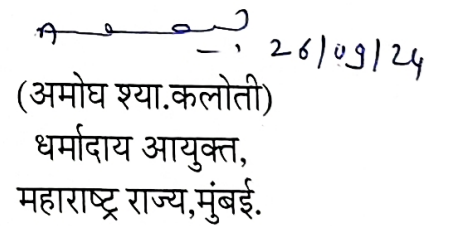 26/09/24
(अमोघ श्या.कलोती)
धर्मादाय आयुक्त,
महाराष्ट्र राज्य,मुंबई.